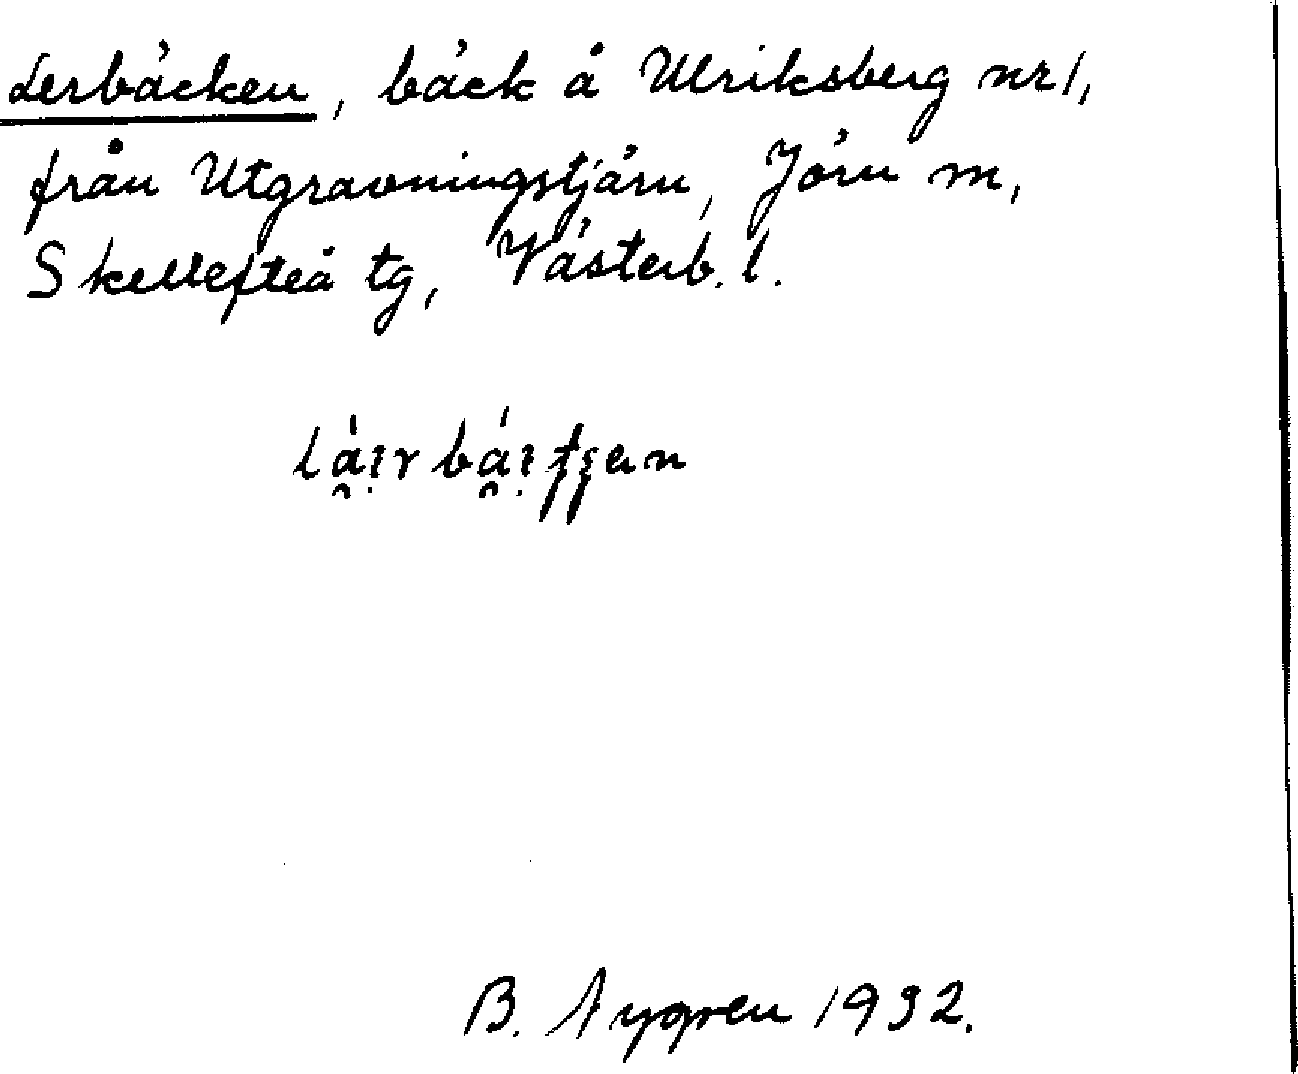 Lerbäcken, bäck å Ulriksberg nr 1,
från Utgravningstjärn, Jörn m,
Skellefteå tg, Västerb. l.
B. Nygren 1932.